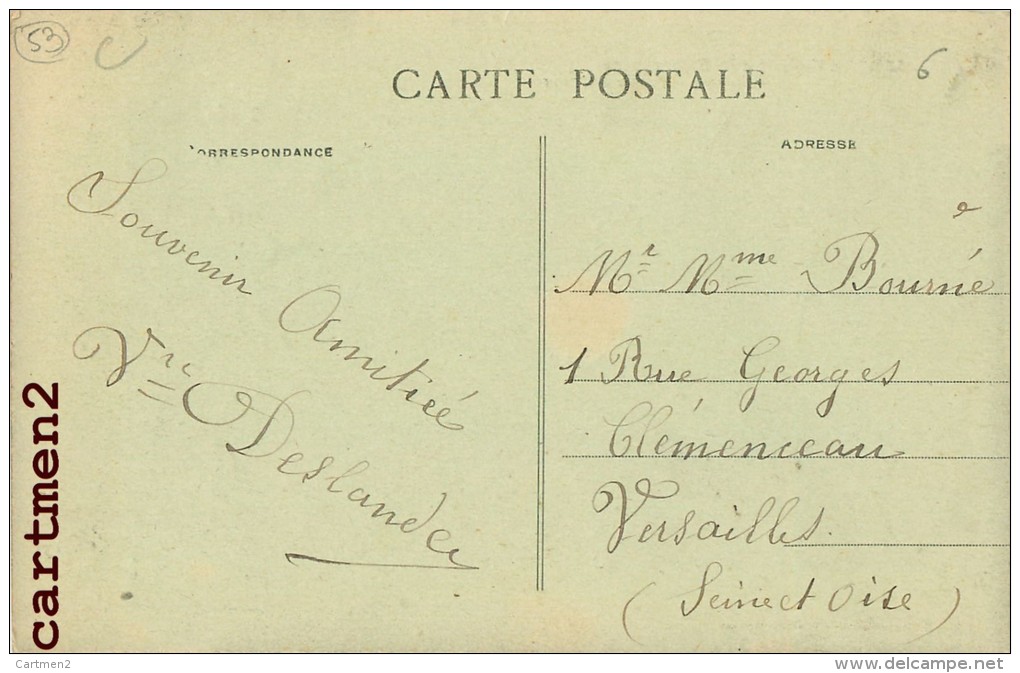 53
6
CARTE POSTALE
CORRESPONDANCE
ADRESSE
Souvenir
Amitiéé
Vve Deslandes
Mr Mme Bourné
1 Rue Georges
Clémenceau
Versailles.
(Seine et Oise)
cartmen2
Cartmen2
http://www.delcampe.net